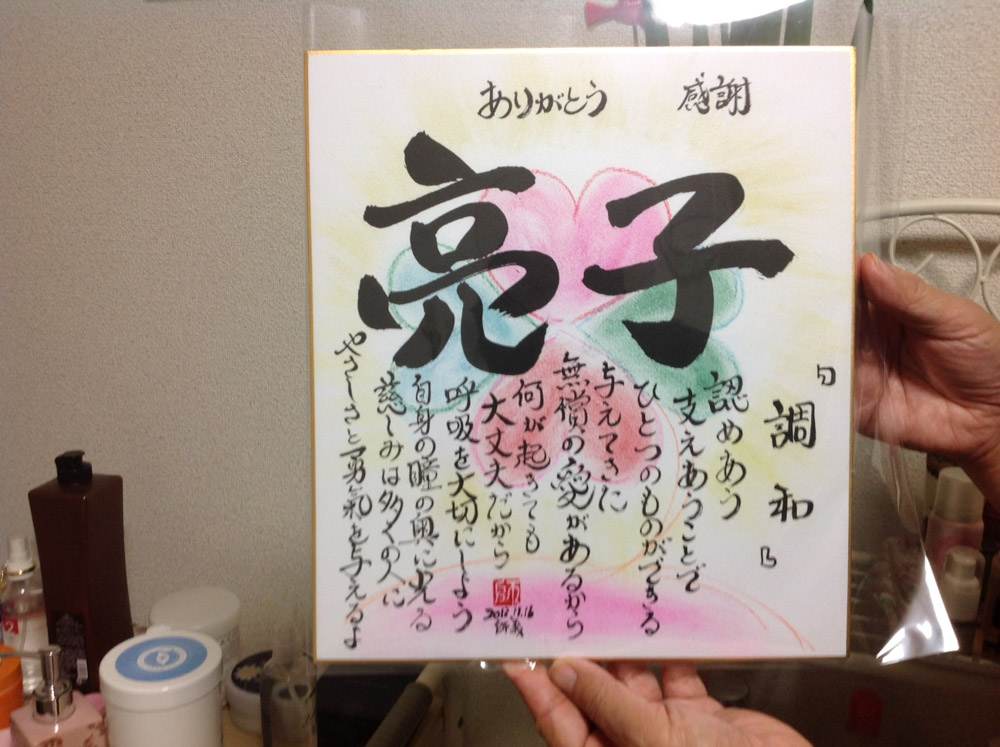 感謝
ありがとう
子
亮
『調和』
認めあう
支えあうことで
ひとつのものができる
与えてきた
無償の愛があるから
何が起きても
大丈夫だから
呼吸を大切にしよう
自身の瞳の奥に光る
慈しみは多くの人に
やさしさと勇氣を与えるよ